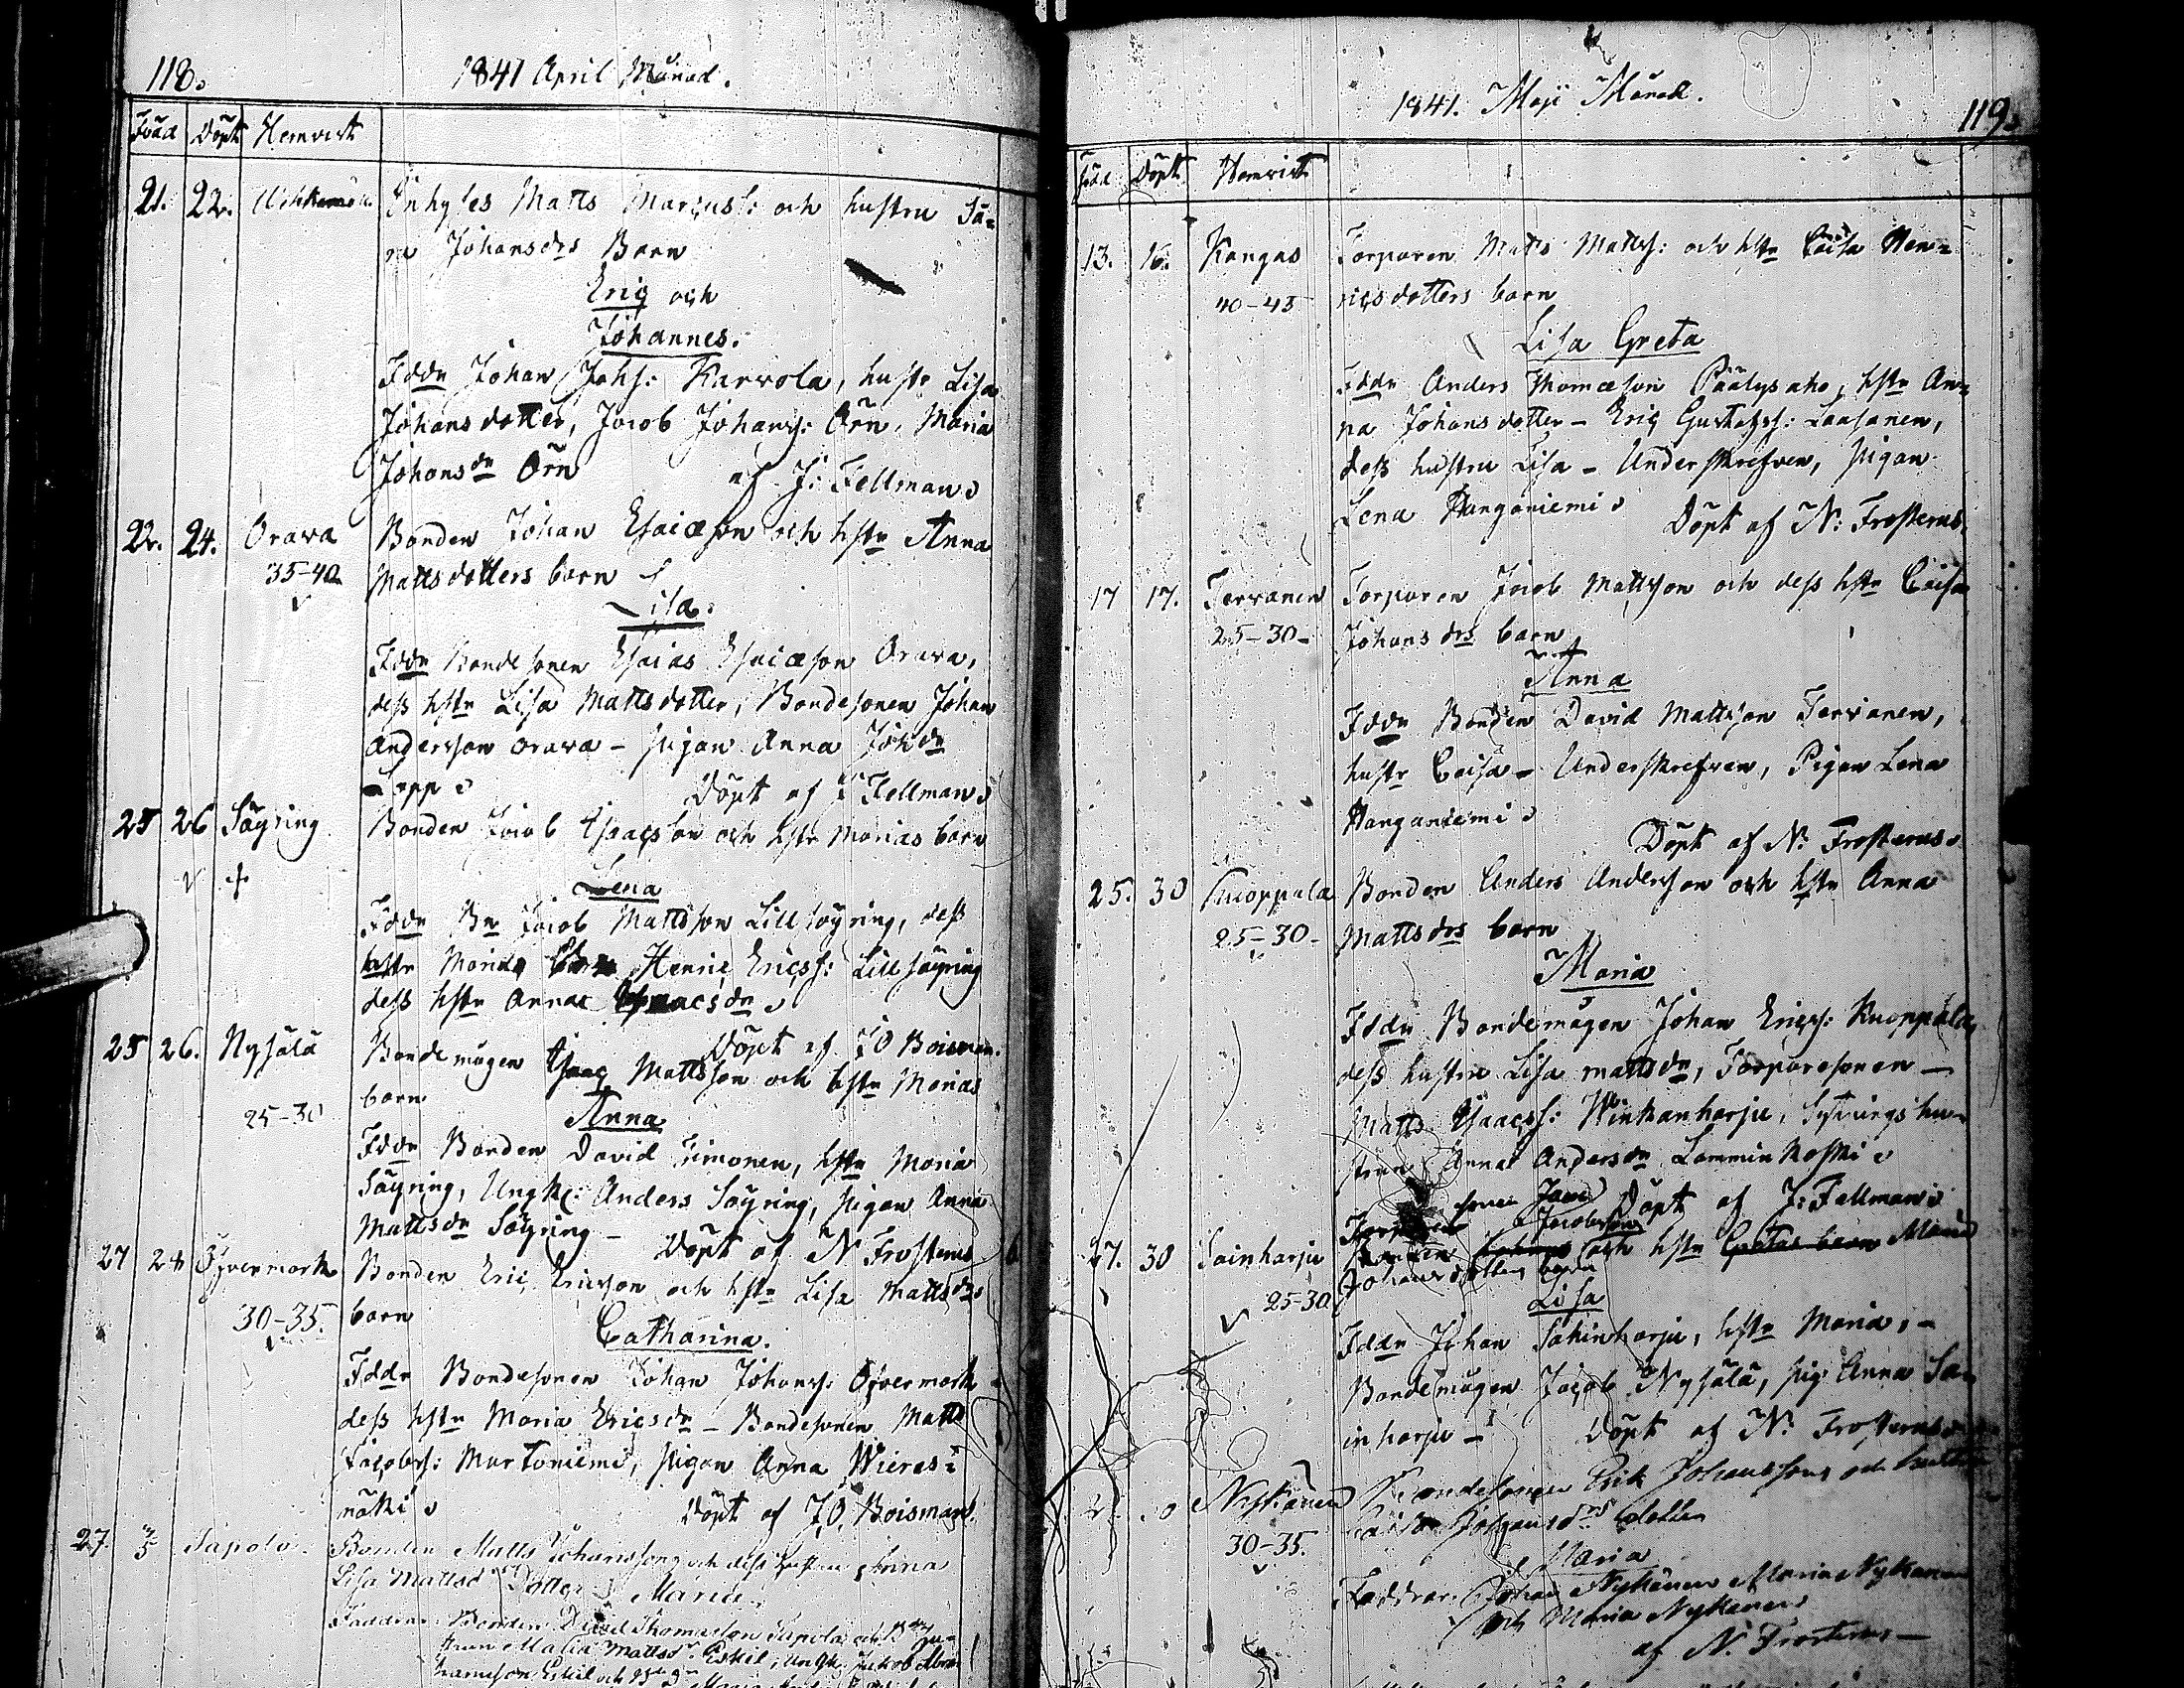 118.
1841 April Månad.
Född Döpt Hemvist
21. 22. Inhyses Matts Marcuss: och hustru Sa=
ra Johansdrs Barn
Eric och
Johannes.
Fddr Johan Johs: Karvola, hustr Lisa
Johansdotter, Jacob Johanss: Örn, Maria
Johansdr Örn af J: Fellman
22. 24. Orava Bonden Johan Esaiæson och hstr Anna
35-40 Mattsdotters barn
Lisa.
Fddr Bondesonen Esaias Esaiæson Orava,
dess hstr Lisa Mattsdotter, Bondesonen Johan
Andersson Orava - pigan Anna Johdr
Lapp Döpt af J Fellman
25 26 Säyring Bonden Jacob Isaacson och hstr Marias barn
Lena
Fddr Bn Jacob Mattsson Lillsäyring, dess
hstr Maria Henric Ericss: Lillsäyring
dess hstr Anna Isaacsdr
Döpt af J O Boisman.
25 26. Nysälä Bondemågen Isaac Mattsson och hstr Marias
25-30 barn
Anna
Fddr Bonden David Timonen, hstr Maria
Säyring, Ungk: Anders Säyring, pigan Anna
Mattsdr Säyring - Döpt af N Frosterus
27 28 Öfvermark Bonden Eric Ericsson och hstr Lisa Mattsdrs
30-35. barn
Catharina.
Fddr Bondesonen Johan Johanss: Öfvermark
dess hstr Maria Ericsdr - Bondesonen Matts
Jacobss: Martoniemi, pigan Anna Wieresi
näki Döpt af J.O. Boisman.
27. 2/5 Sapola. Bonden Matts Johansson och dess hustru Anna
Lisa Mattsd Dotter Maria.
Faddrar: Bonden David Thomasson Sapola och
Maria Mattsdr Eskil, Ungk. Jakob Abra
hamsson Eskil och
1841. Maji Månad.
119.
Född Döpt Hemvist
13. 16. Kangas Torparen Matts Mattss: och hstr Caisa Hen=
40-45 ricsdotters barn
Lisa Greta
Fddr Anders Thomæson Päälysaho, hstr An=
na Johansdotter - Eric Gustafss: Laasanen,
dess hustru Lisa - Underskrefven, pigan
Lena Hanganiemi Döpt af N: Frosterus.
17 17. Tervanen Torparen Jacob Mattsson och dess hstr Caisa
25-30- Johansdrs barn
Anna
Fddr Bonden David Mattsson Tervanen,
hustr Caisa - Underskrefven, Pigan Lena
Hanganiemi
Döpt af N: Frosterus
25. 30 Kuoppala Bonden Anders Andersson och hstr Anna
25-30- Mattsdrs barn
Maria
Fddr Bondemågen Johan Ericss: Kuoppala,
dess hustru Lisa Mattsdr, Torparesonen -
Matts Isaacss: Winkanharju, Sytningshu=
strun Anna Andersdr Lamminkoski
Döpt af J: Fellman
27. 30 Sainharju Jacobsson och hstr Gretas barn Maria
25-30 Johansdotters barn
Lisa
Fddr Johan Sainharju, hstr Maria, -
Bondemågen Jacob Nysälä, pig: Anna Sa
inharju - Döpt af N: Frosterus
Nykänen Bondesonen Erik Johansson och hustru
30-35. Caisa Johansdrs dotter
Maria
Faddrar: Johan Nykänen Maria Nykänen
och Maria Nykänen
af N. Frosterus -